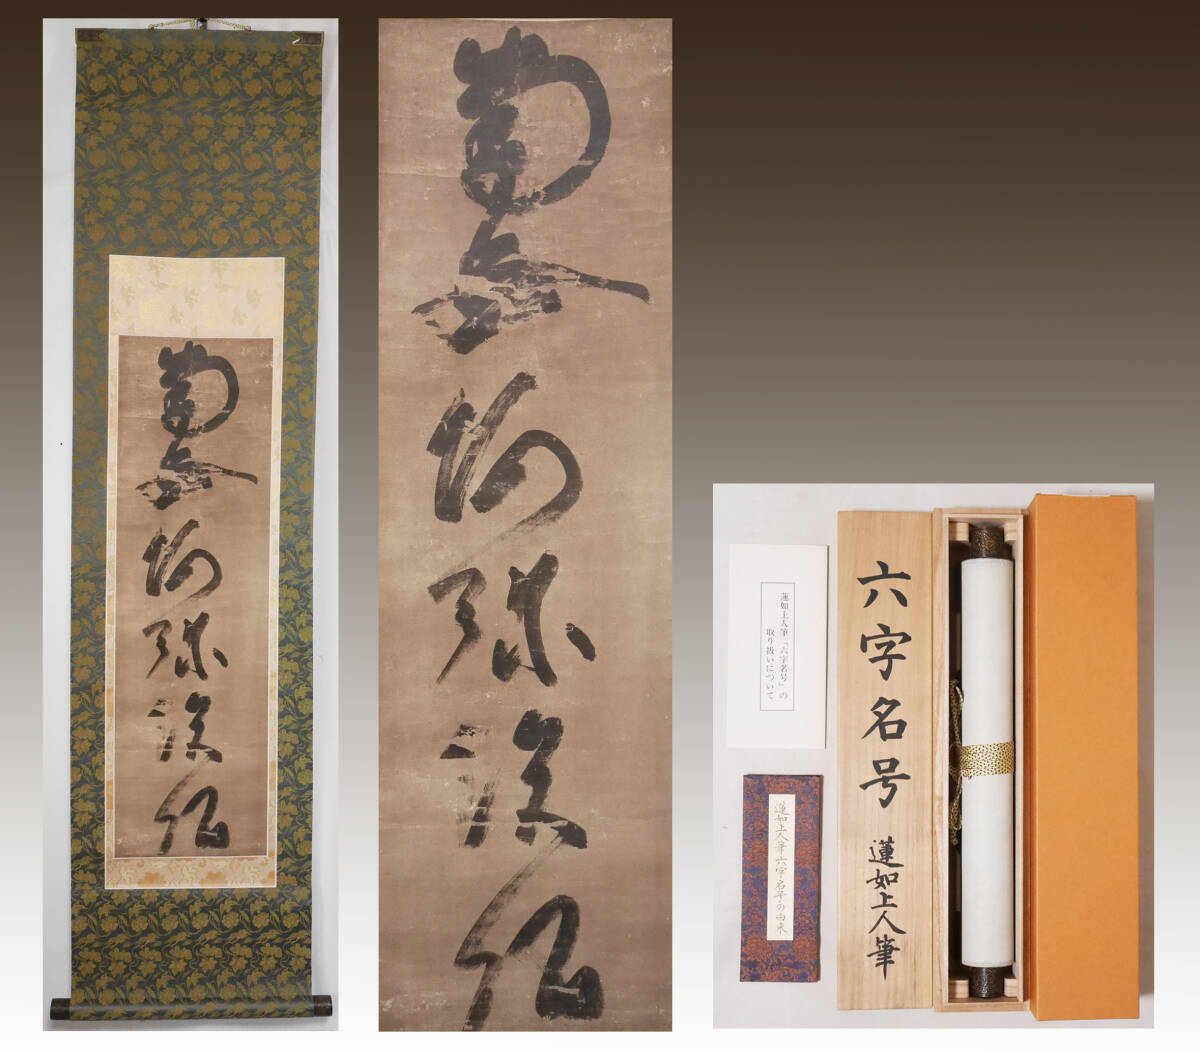 南無阿弥陀仏
南無阿弥陀仏
蓮如上人筆「六字名号」の
取り扱いについて
蓮如上人筆六字名号の由来
六字名号
蓮如上人筆